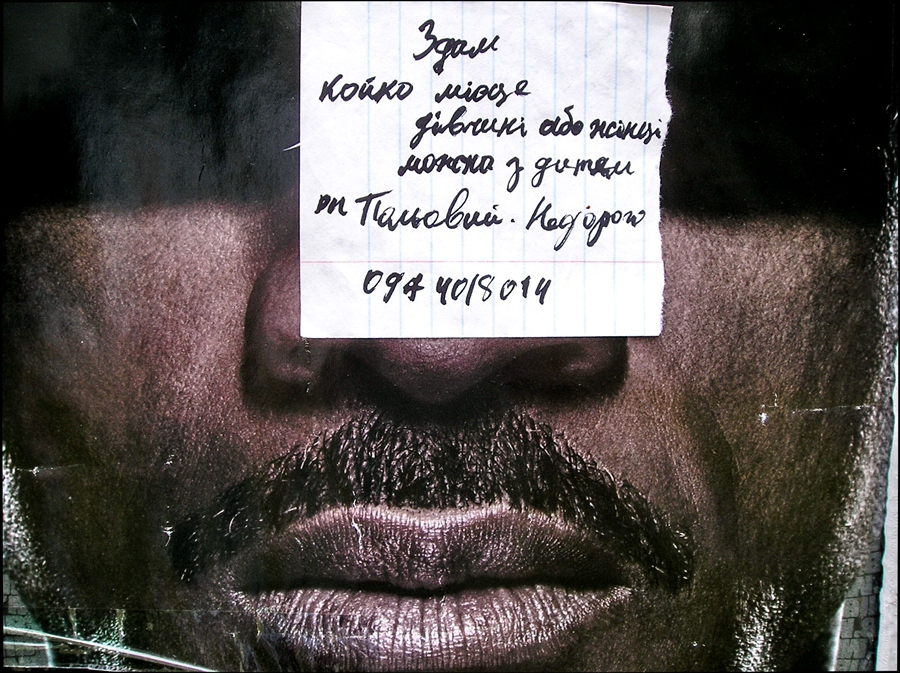 Здам
койко місце
дівчині або жінці
можна з дитям
рп Пальовий. Недорого
097 4018014